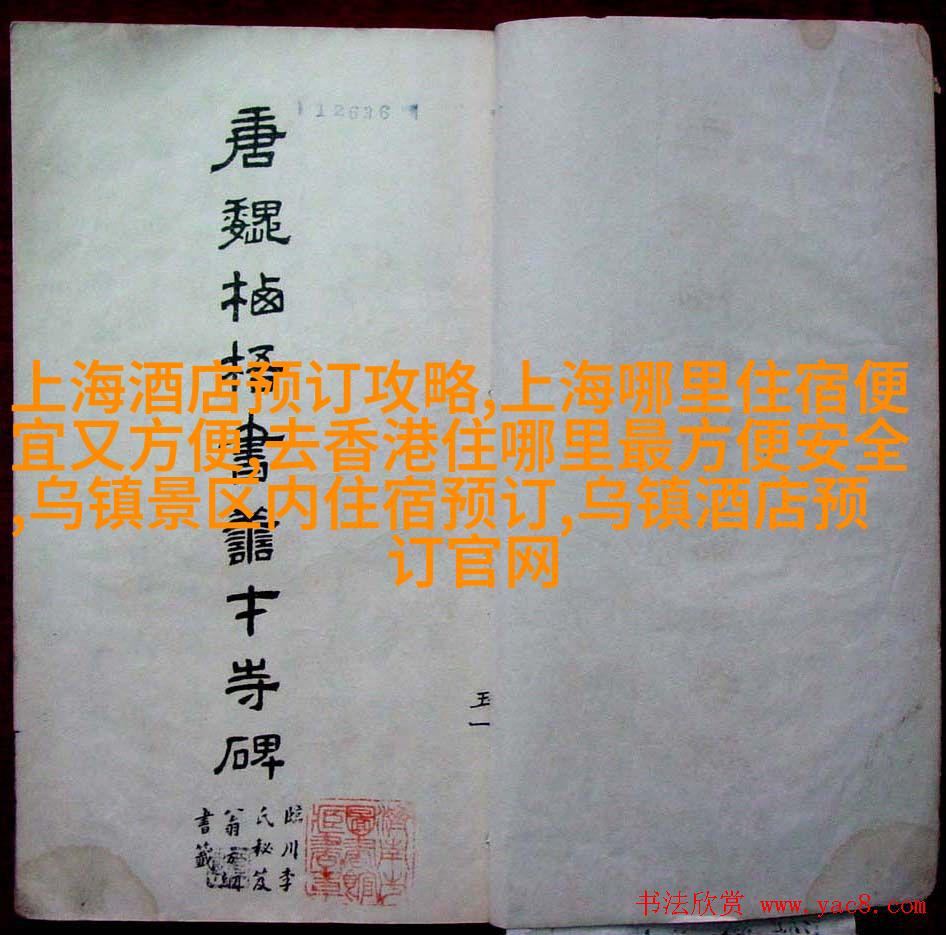 12636
唐魏栖梧書善才寺碑
臨川李
氏秘笈
翁方綱
書籤
王一
上海酒店预订攻略,上海哪里住宿便
宜又方便,去香港住哪里最方便安全
,乌镇景区内住宿预订,乌镇酒店预
订官网
书法欣赏 www.yac8.com